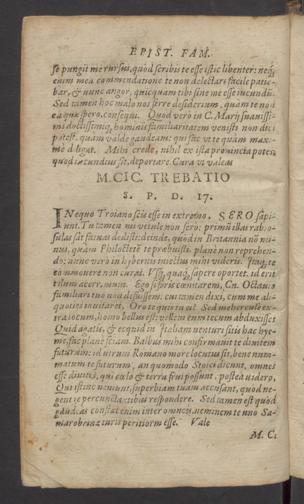 EPIST. FAM.
se pungit me rursus, quòd scribis te esse istic libenter: neq;
enim mea commendatione te non delectari facile patie-
bar, & nunc angor, quicquam tibi sine me esse iucundū.
Sed tamen hoc malo nos ferre desiderium, quàm te non
ea quæ spero, consequi. Quod verò in C. Marij suauissi-
mi doctissimiq; hominis familiaritatem venisti non dici
potest, quàm valde gaudeam: qui fac vt te quàm maxi-
mè diligat. Mihi crede, nihil ex ista prouincia potes,
quod iucundius sit, deportare. Cura vt valeas
M. CIC. TREBATIO
S. P. D. 17.
IN equo Troiano scis esse in extremo, SERO sapi-
unt. Tu tamen mi vetule non sero: primū illas rab.o-
sulas sat fatuas dedisti: deinde, quòd in Britannia nō ni-
mis, planè non reprehen-
do: nunc verò in hybernis
te commouere non curat. Vsq; quaq; sapere oportet. id erit
tilum acerrimum. Ego si foris cœnitarem, Cn. Octauio
familiari tuo non defuissem: cui tamen dixi, cum me ali-
quoties inuitaret, Oro te quis tu es? Sed mehercule ex-
tra iocum, homo bellus est: vellem eum tecum abduxisses
Quid agatis, & ecquid in Italiam venturi sitis hac hye-
me, fac planè sciam. Balbus mihi confirmauit te diuitem
futurum: id vtrum Romano more locutus sit, bene num-
matum te futurum, an quomodo Stoici dicunt, omnes
esse diuites, qui cœlo & terra frui possunt, postea videro,
Qui istinc veniunt, superbiam tuam accusant, quòd ne-
gent te percunctantibus respondere. Sed tamen est quod
gaudeas constat enim inter omneis, neminem te vno Sa-
marobriuæ iuris peritiorem esse. Vale
M. C.